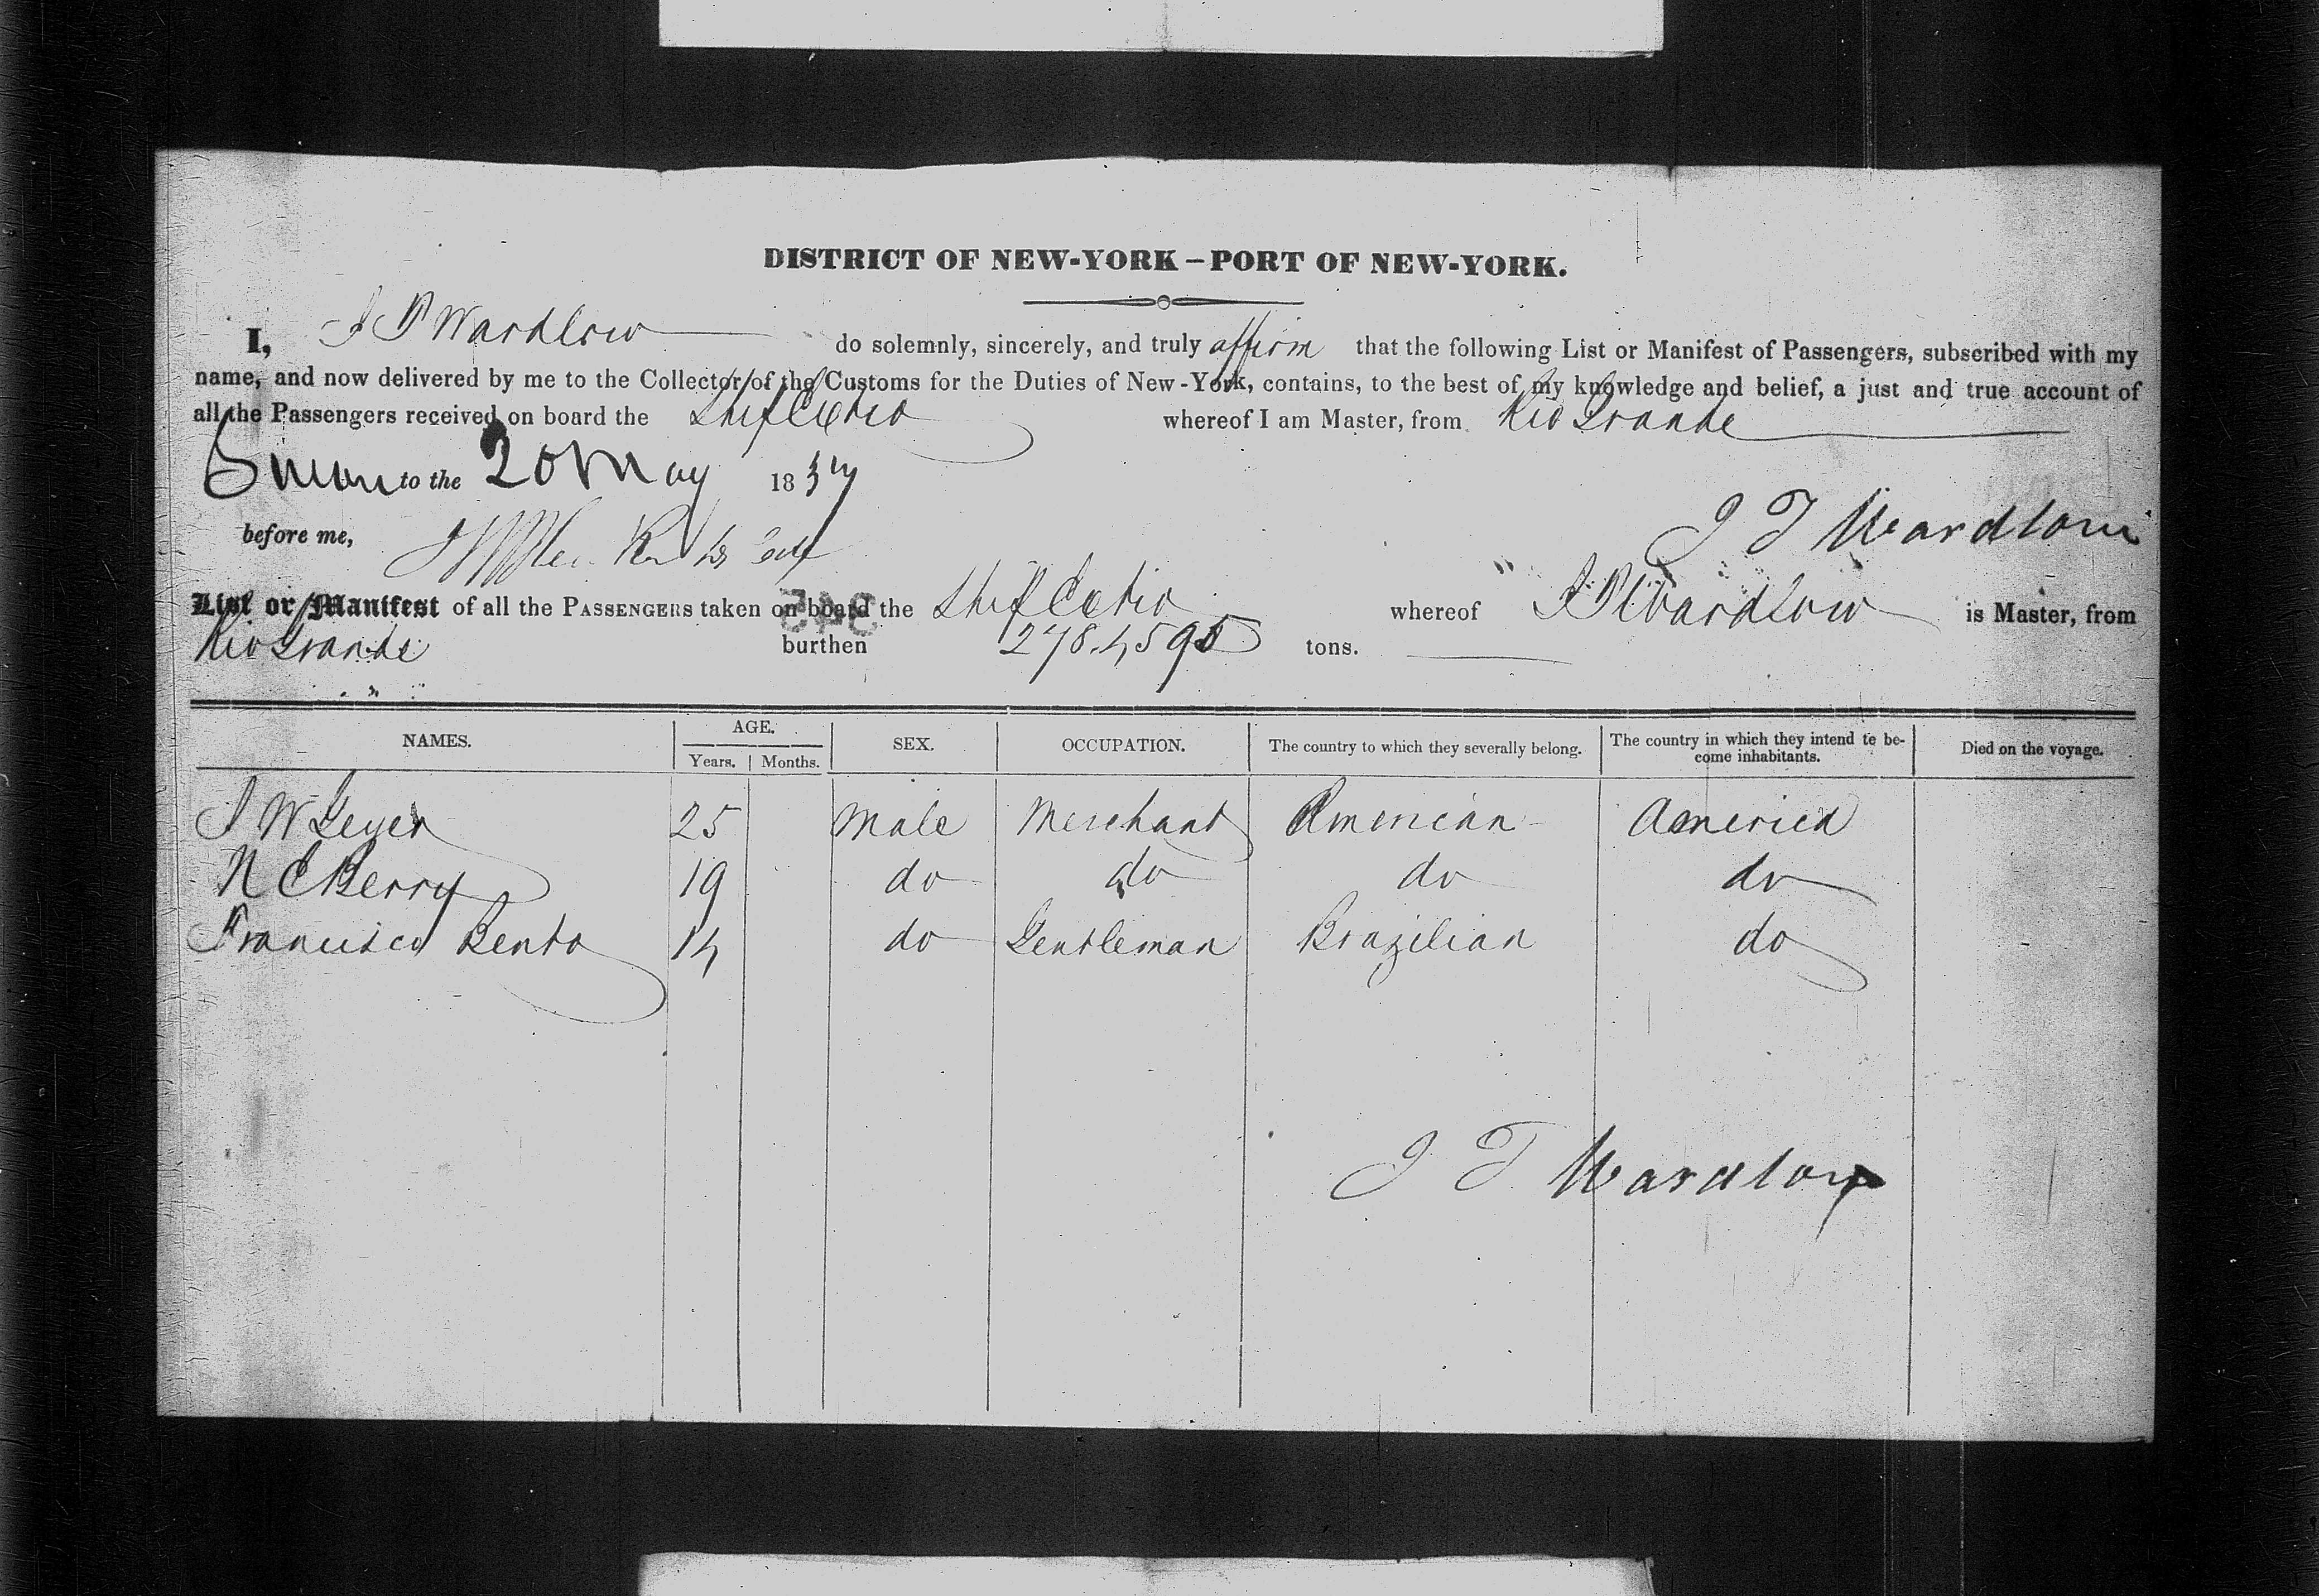 DISTRICT OF NEW-YORK – PORT OF NEW-YORK.
I, J T Wardlow do solemnly, sincerely, and truly affirm that the following List or Manifest of Passengers, subscribed with my
name, and now delivered by me to the Collector of the Customs for the Duties of New-York, contains, to the best of my knowledge and belief, a just and true account of
all the Passengers received on board the Ship whereof I am Master, from Rio Grande
to the 20 May 1837
before me,
J T Wardlow
List or Manifest of all the PASSENGERS taken on board the Ship whereof J T Wardlow is Master, from
Rio Grande burthen tons.
NAMES. AGE. Years. Months. SEX. OCCUPATION. The country to which they severally belong. The country in which they intend to become inhabitants. Died on the voyage.
J W Geyer 25 Male Merchant American America
N C Berry 19 do do do do
Francisco Bento 14 do Gentleman Brazilian do
J T Wardlow